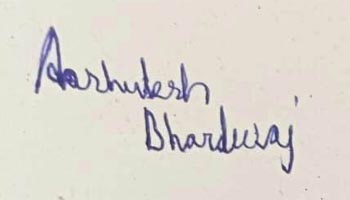 Aashutesh
Bhardwaj